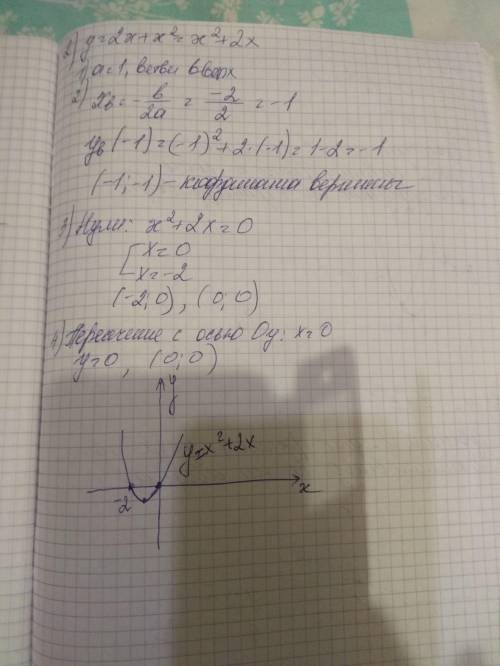 2) y=2x+x²=x²+2x
1) a=1, ветви вверх
2) xв = -в/2a = -2/2 = -1
yв(-1)=(-1)²+2·(-1)=1-2=-1
(-1;-1)-координата вершины
3) Нули: x²+2x=0
[x=0
x=-2
(-2;0), (0;0)
4) Пересечение с осью Oy: x=0
y=0, (0;0)
y
y=x²+2x
-2
x